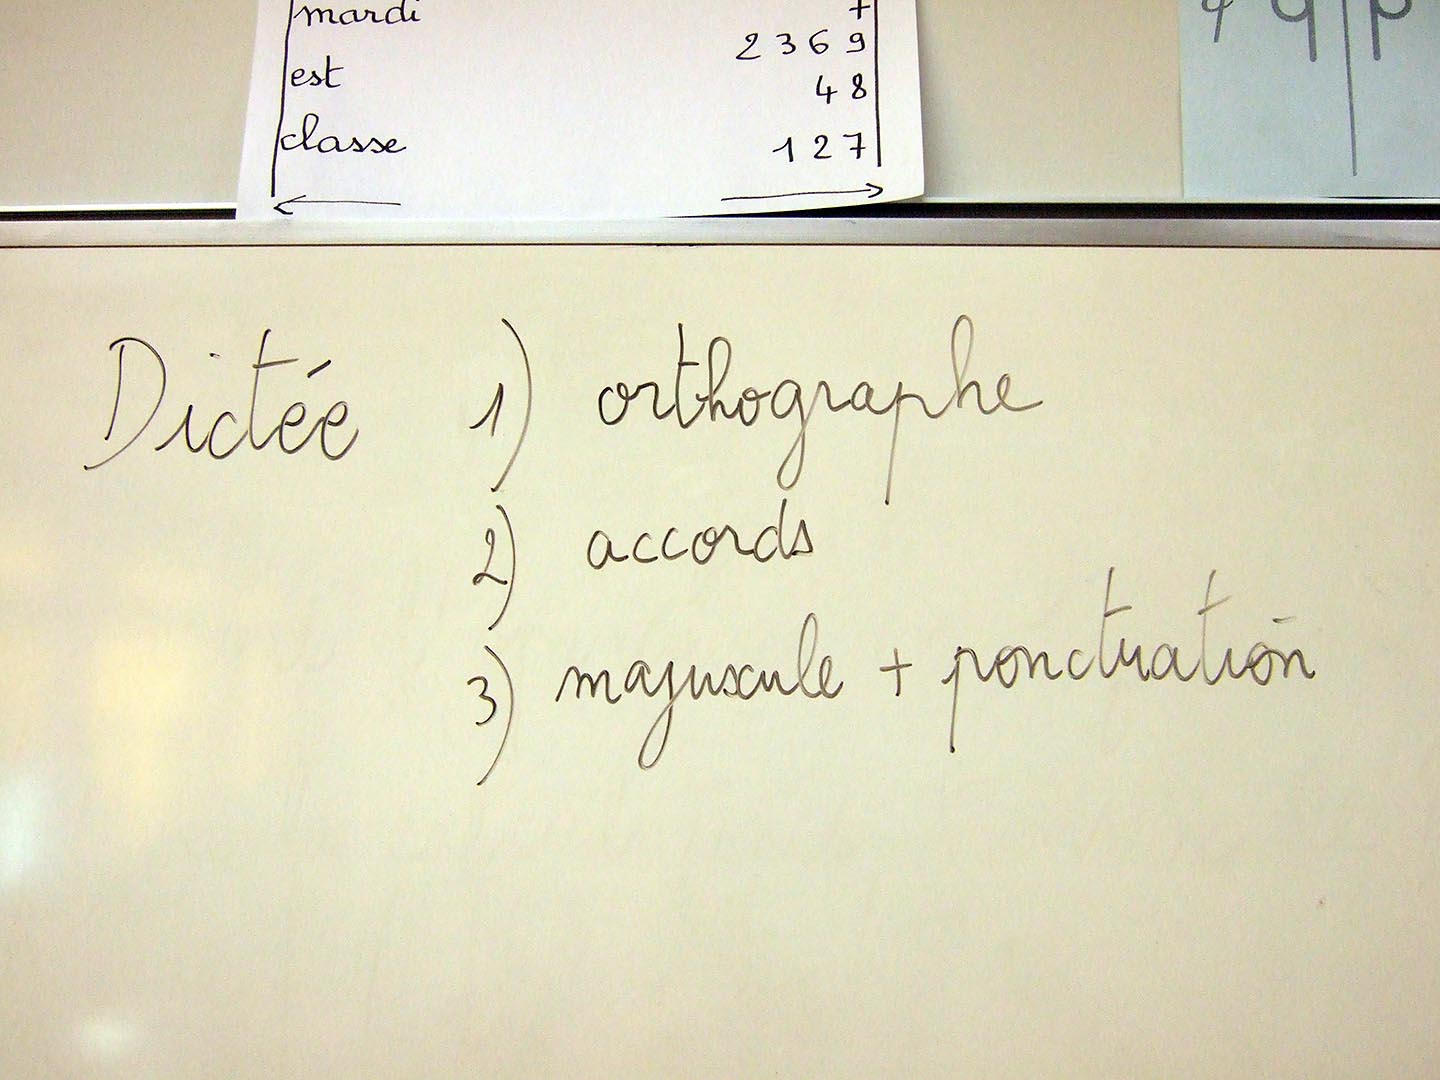 mardi +
2369
est 48
classe 127
q p
Dictée 1) orthographe
2) accords
3) majuscule + ponctuation